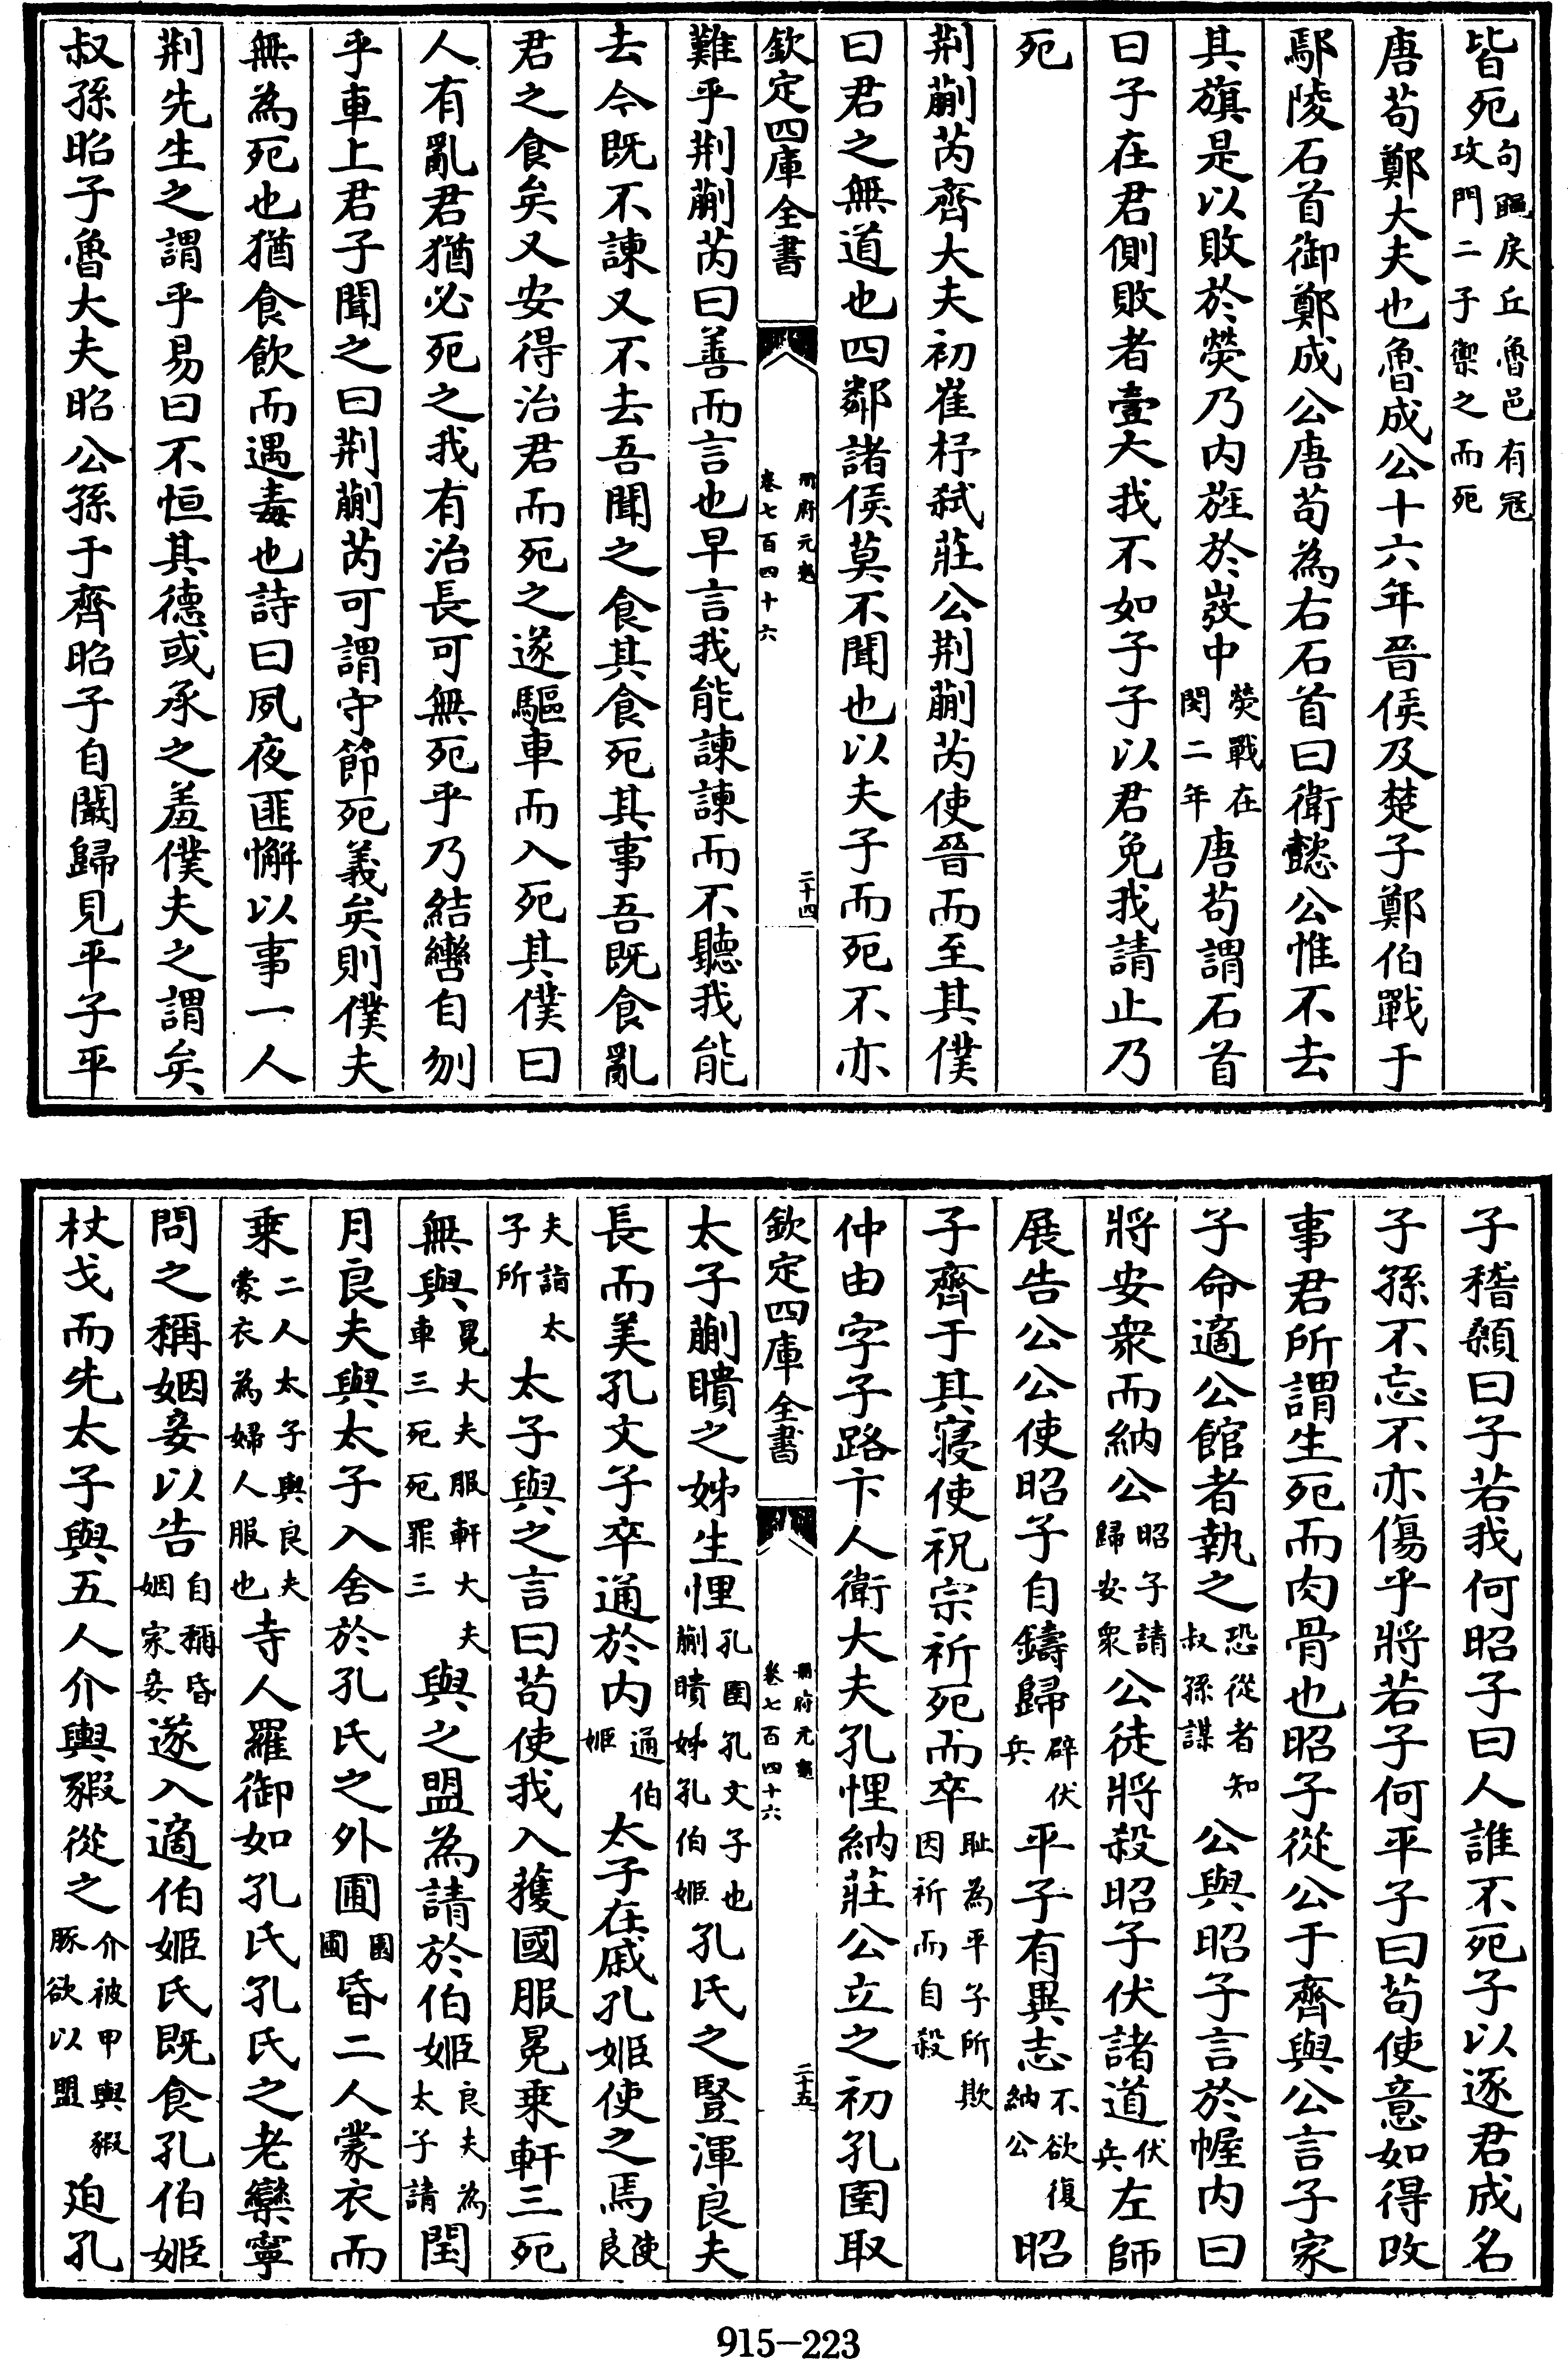 皆死句鼆戾丘魯邑有寇攻門二子禦之而死
唐苟鄭大夫也魯成公十六年晉侯及楚子鄭伯戰于
鄢陵石首御鄭成公唐苟為右石首曰衛懿公惟不去
其旗是以敗於熒乃内旌於弢中熒戰在閔二年唐苟謂石首
曰子在君側敗者壹大我不如子子以君免我請止乃
死
荆蒯芮齊大夫初崔杼弑莊公荆蒯芮使晉而至其僕
曰君之無道也四鄰諸侯莫不聞也以夫子而死不亦
欽定四庫全書 冊府元龜 卷七百四十六 二十四
難乎荆蒯芮曰善而言也早言我能諫諫而不聽我能
去今既不諫又不去吾聞之食其食死其事吾既食亂
君之食矣又安得治君而死之遂驅車而入死其僕曰
人有亂君猶必死之我有治長可無死乎乃結轡自刎
乎車上君子聞之曰荆蒯芮可謂守節死義矣則僕夫
無為死也猶食飲而遇毒也詩曰夙夜匪懈以事一人
荆先生之謂乎易曰不恒其德或承之羞僕夫之謂矣
叔孫昭子魯大夫昭公孫于齊昭子自闞歸見平子平
子稽顙曰子若我何昭子曰人誰不死子以逐君成名
子孫不忘不亦傷乎將若子何平子曰苟使意如得改
事君所謂生死而肉骨也昭子從公于齊與公言子家
子命適公館者執之恐從者知叔孫謀公與昭子言於幄内曰
將安衆而納公昭子請歸安衆公徒將殺昭子伏諸道伏兵左師
展告公公使昭子自鑄歸辟伏兵平子有異志不欲復納公昭
子齊于其寢使祝宗祈死而卒恥為平子所欺因祈而自殺
仲由字子路卞人衛大夫孔悝納莊公立之初孔圉取
欽定四庫全書 冊府元龜 卷七百四十六 二十五
太子蒯聵之姊生悝孔圉孔文子也蒯聵姊孔伯姬孔氏之豎渾良夫
長而美孔文子卒通於内通伯姬太子在戚孔姬使之焉使良
夫詣太子所太子與之言曰苟使我入獲國服冕乘軒三死
無與冕大夫服軒大夫車三死死罪三與之盟為請於伯姬良夫為太子請閏
月良夫與太子入舍於孔氏之外圃圃園昏二人蒙衣而
乘二人太子與良夫蒙衣為婦人服也寺人羅御如孔氏孔氏之老欒寧
問之稱姻妾以告自稱昏姻家妾遂入適伯姬氏既食孔伯姬
杖戈而先太子與五人介輿豭從之介被甲輿豭豚欲以盟迫孔
915-223